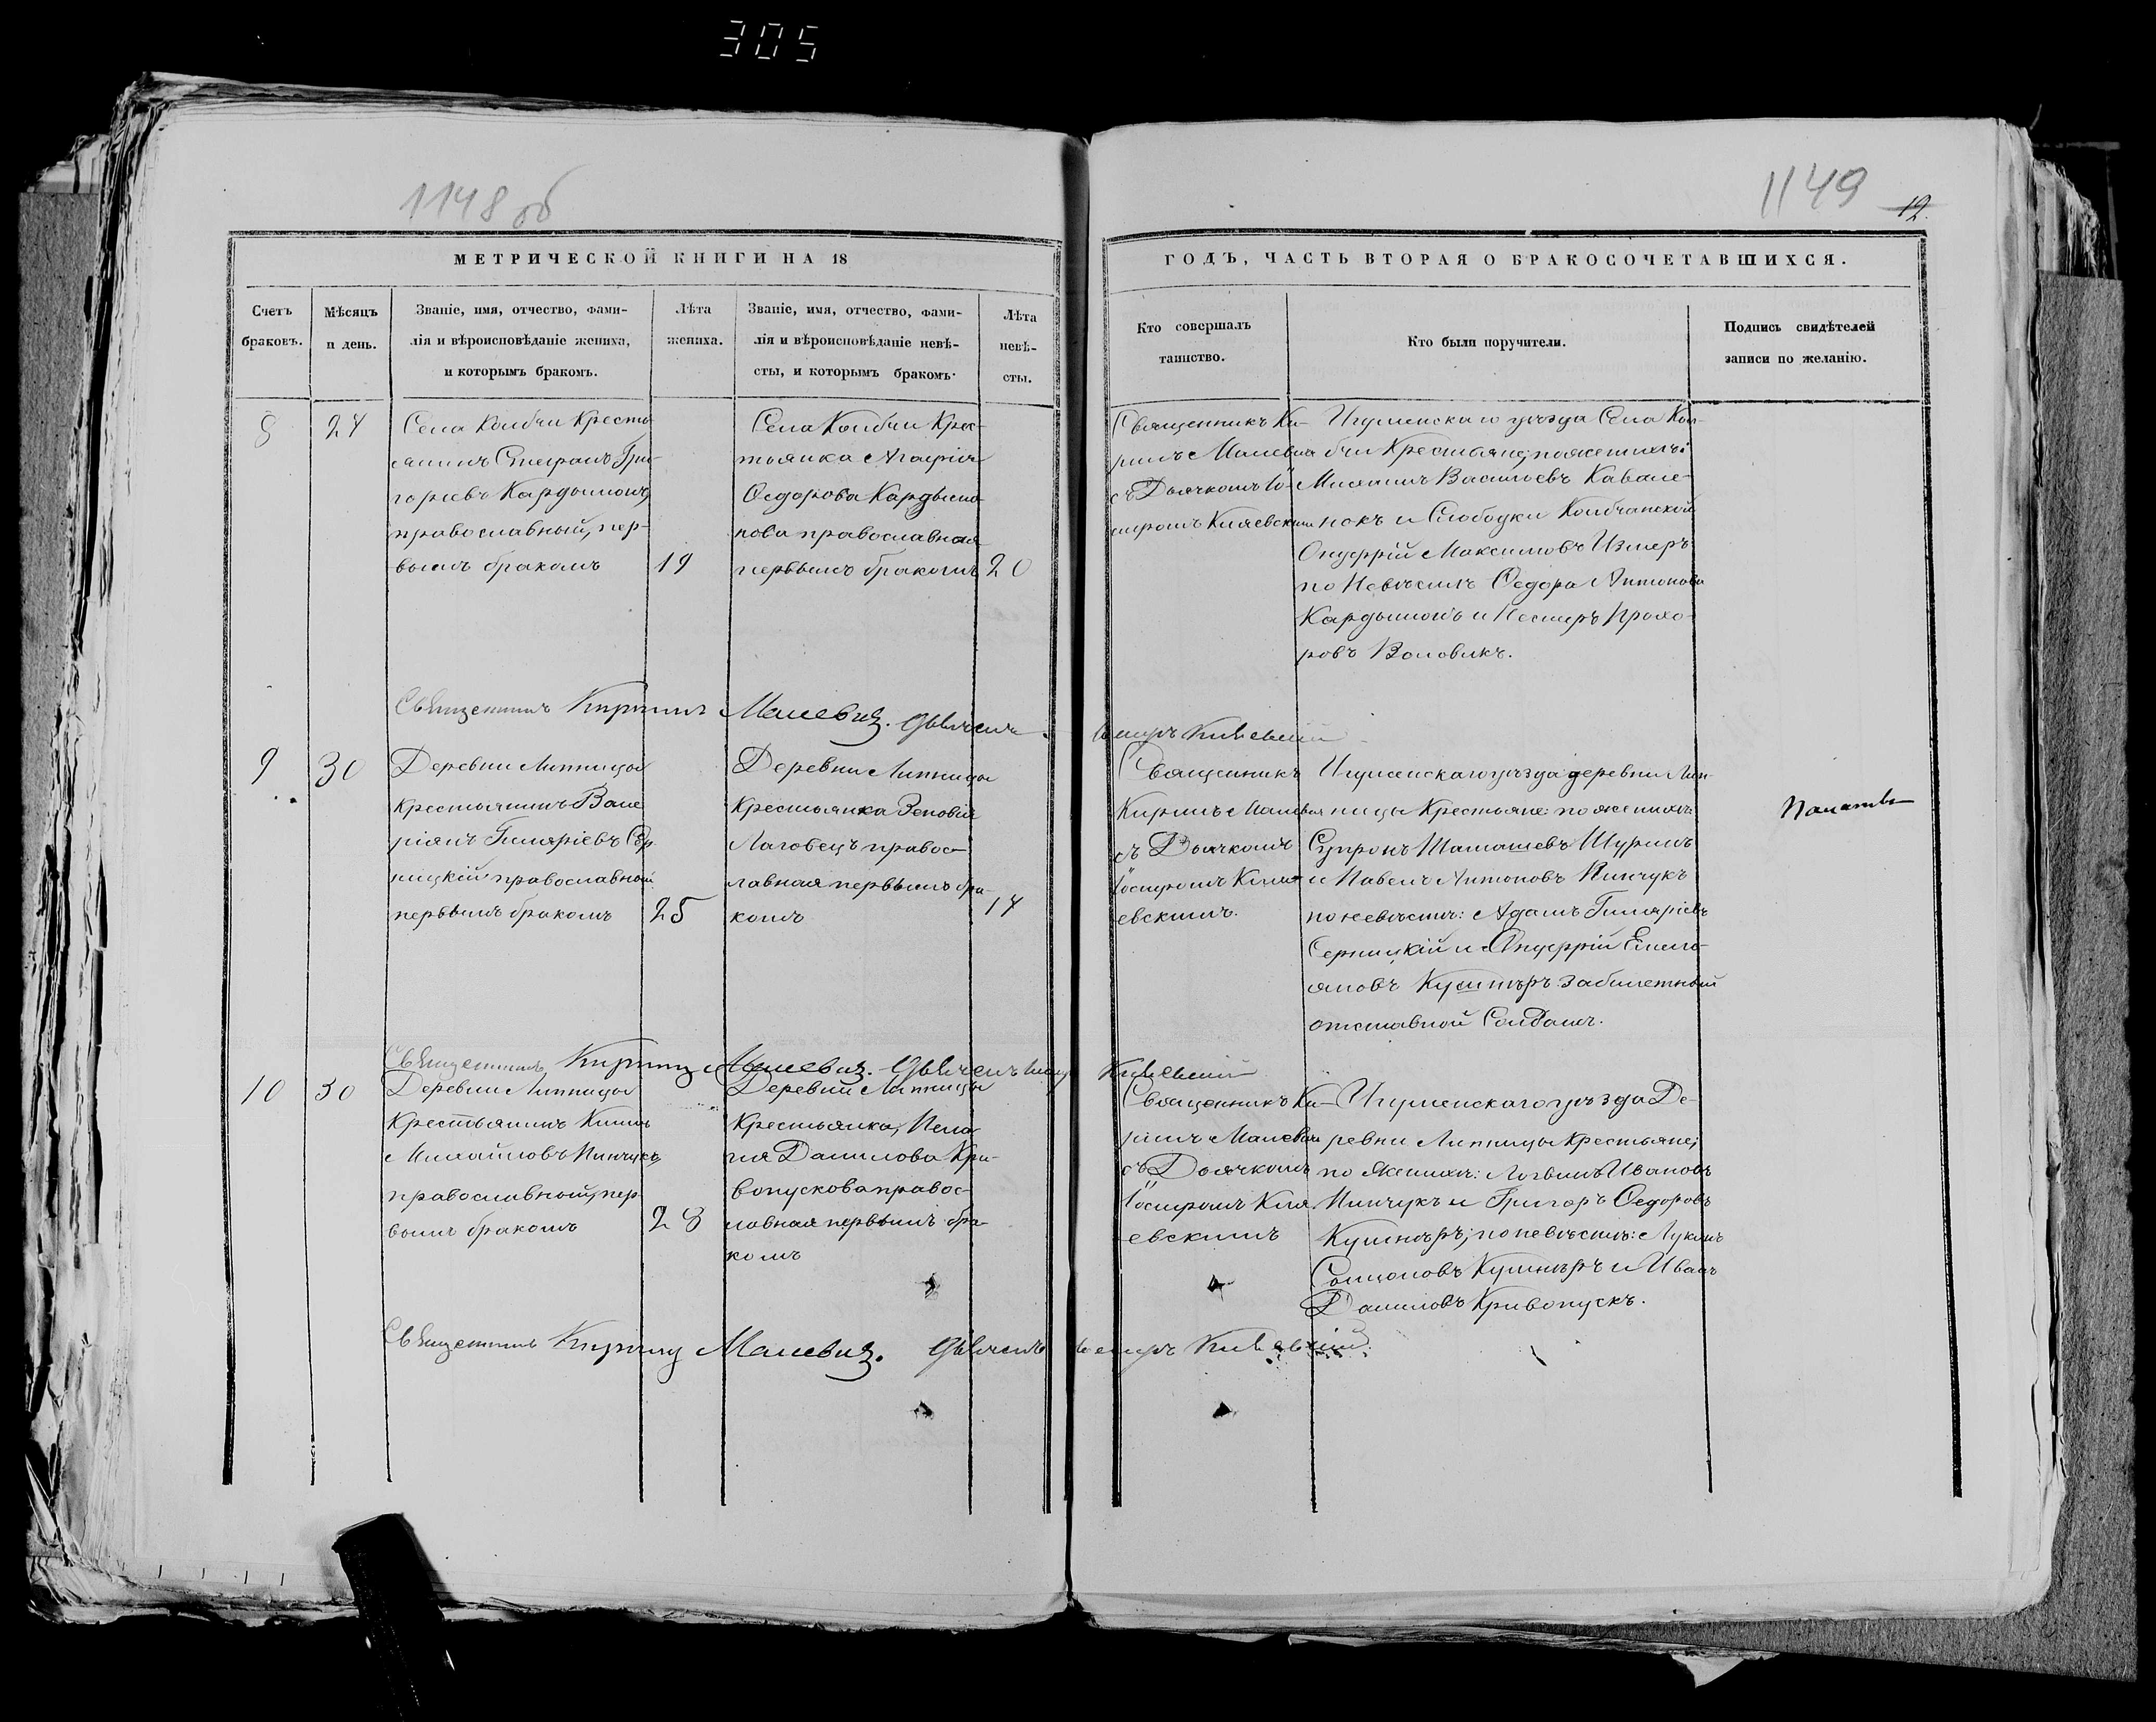 305
1148 об
1149
12.
МЕТРИЧЕСКОЙ КНИГИ НА 18
ГОДЪ, ЧАСТЬ ВТОРАЯ О БРАКОСОЧЕТАВШИХСЯ.
Счетъ
браковъ.
Мѣсяцъ
и день.
Званіе, имя, отчество, фами-
лія и вѣроисповѣданіе жениха,
и которымъ бракомъ.
Лѣта
жениха.
Званіе, имя, отчество, фами-
лія и вѣроисповѣданіе невѣ-
сты, и которымъ бракомъ.
Лѣта
невѣ-
сты.
Кто совершалъ
таинство.
Кто были поручители.
Подпись свидѣтелей
записи по желанію.
8
24
Села Колбчи Кресть
янинъ Стефанъ Гри-
горьевъ Кардымонъ,
православный, пер-
вымъ бракомъ
19
Села Колбчи Крес-
тьянка Агафія
Ѳедорова Кардымо-
нова православная
первымъ бракомъ
20
Священникъ Ки-
рилъ Малевичъ
съ Дьячкомъ Іо-
сифомъ Кияевскимъ
Игуменскаго уѣзда Села Кол-
бчи Крестьяне; по женихѣ:
Василіевъ Кавале-
нокъ и Слободки Колбчанской
Онуфрій Максимовъ Измеръ
по Невѣстѣ Ѳедора Антоновъ
Кардымонъ и Нестеръ Прохо-
ровъ Воловикъ.
Священникъ Кириллъ Малевичъ. Дьячекъ Іосифъ Киявскій
9
30
Деревни Липницы
Крестьянинъ Вале
ріянъ Гиляріевъ Сер
ницкій православный
первымъ бракомъ
25
Деревни Липницы
Крестьянка Зеновія
Лаговецъ правос-
лавная первымъ бра-
комъ
17
Священникъ
Кирилъ Малевичъ
съ Дьячкомъ
Іосифомъ Кия-
евскимъ.
Игуменскаго уѣзда деревни Лип-
ницы Крестьяне: по женихѣ
Супронъ
и Павелъ Антоновъ Пинчукъ
по невѣстѣ: Адамъ Гиляріевъ
Серницкій и Онуфрій Емель-
яновъ Кушнѣръ забилетный
отставной Солдатъ.
Священникъ Кириллъ Малевичъ. Дьячекъ Іосифъ Киявскій
10
30
Деревни Липницы
Крестьянинъ
Михайловъ Пинчукъ
православный, пер
вымъ бракомъ
28
Деревни Липницы
Крестьянка, Пела
гія Данилова Кри-
вопускова правос-
лавная первымъ бра-
комъ
Священникъ Ки-
рилъ Малевичъ
съ Дьячкомъ
Іосифомъ Кия
евскимъ
Игуменскаго уѣзда Де-
ревни Липницы Крестьяне;
по Женихѣ: Логвинъ Ивановъ
Пинчукъ и Григоръ Ѳедоровъ
Кушнѣръ; по невѣстѣ: Лукашъ
Кушнѣръ и Иванъ
Даниловъ Кривопускъ.
Священникъ Кириллъ Малевичъ. Дьячекъ Іосифъ Киявскій